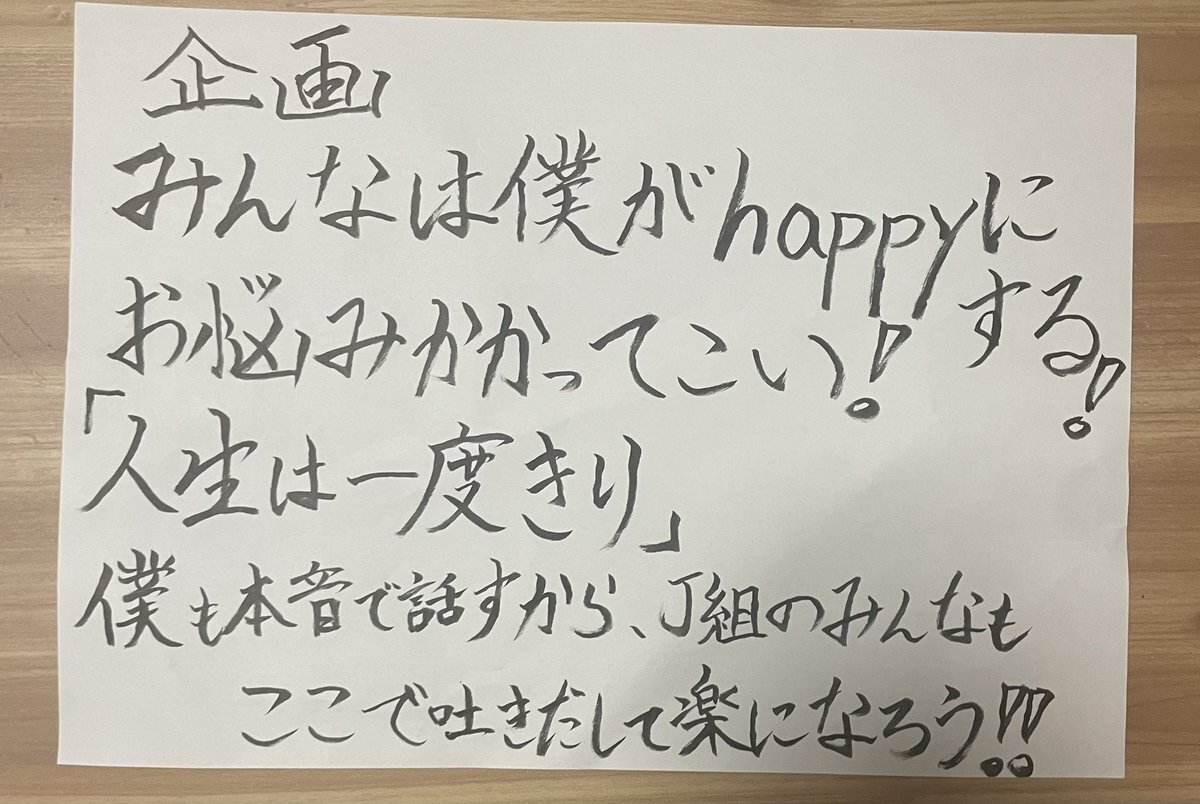 企画
みんなは僕がhappyに
する!
お悩みかかってこい!
「人生は一度きり」
僕も本音で話すから、J組のみんなも
ここで吐きだして楽になろう!!